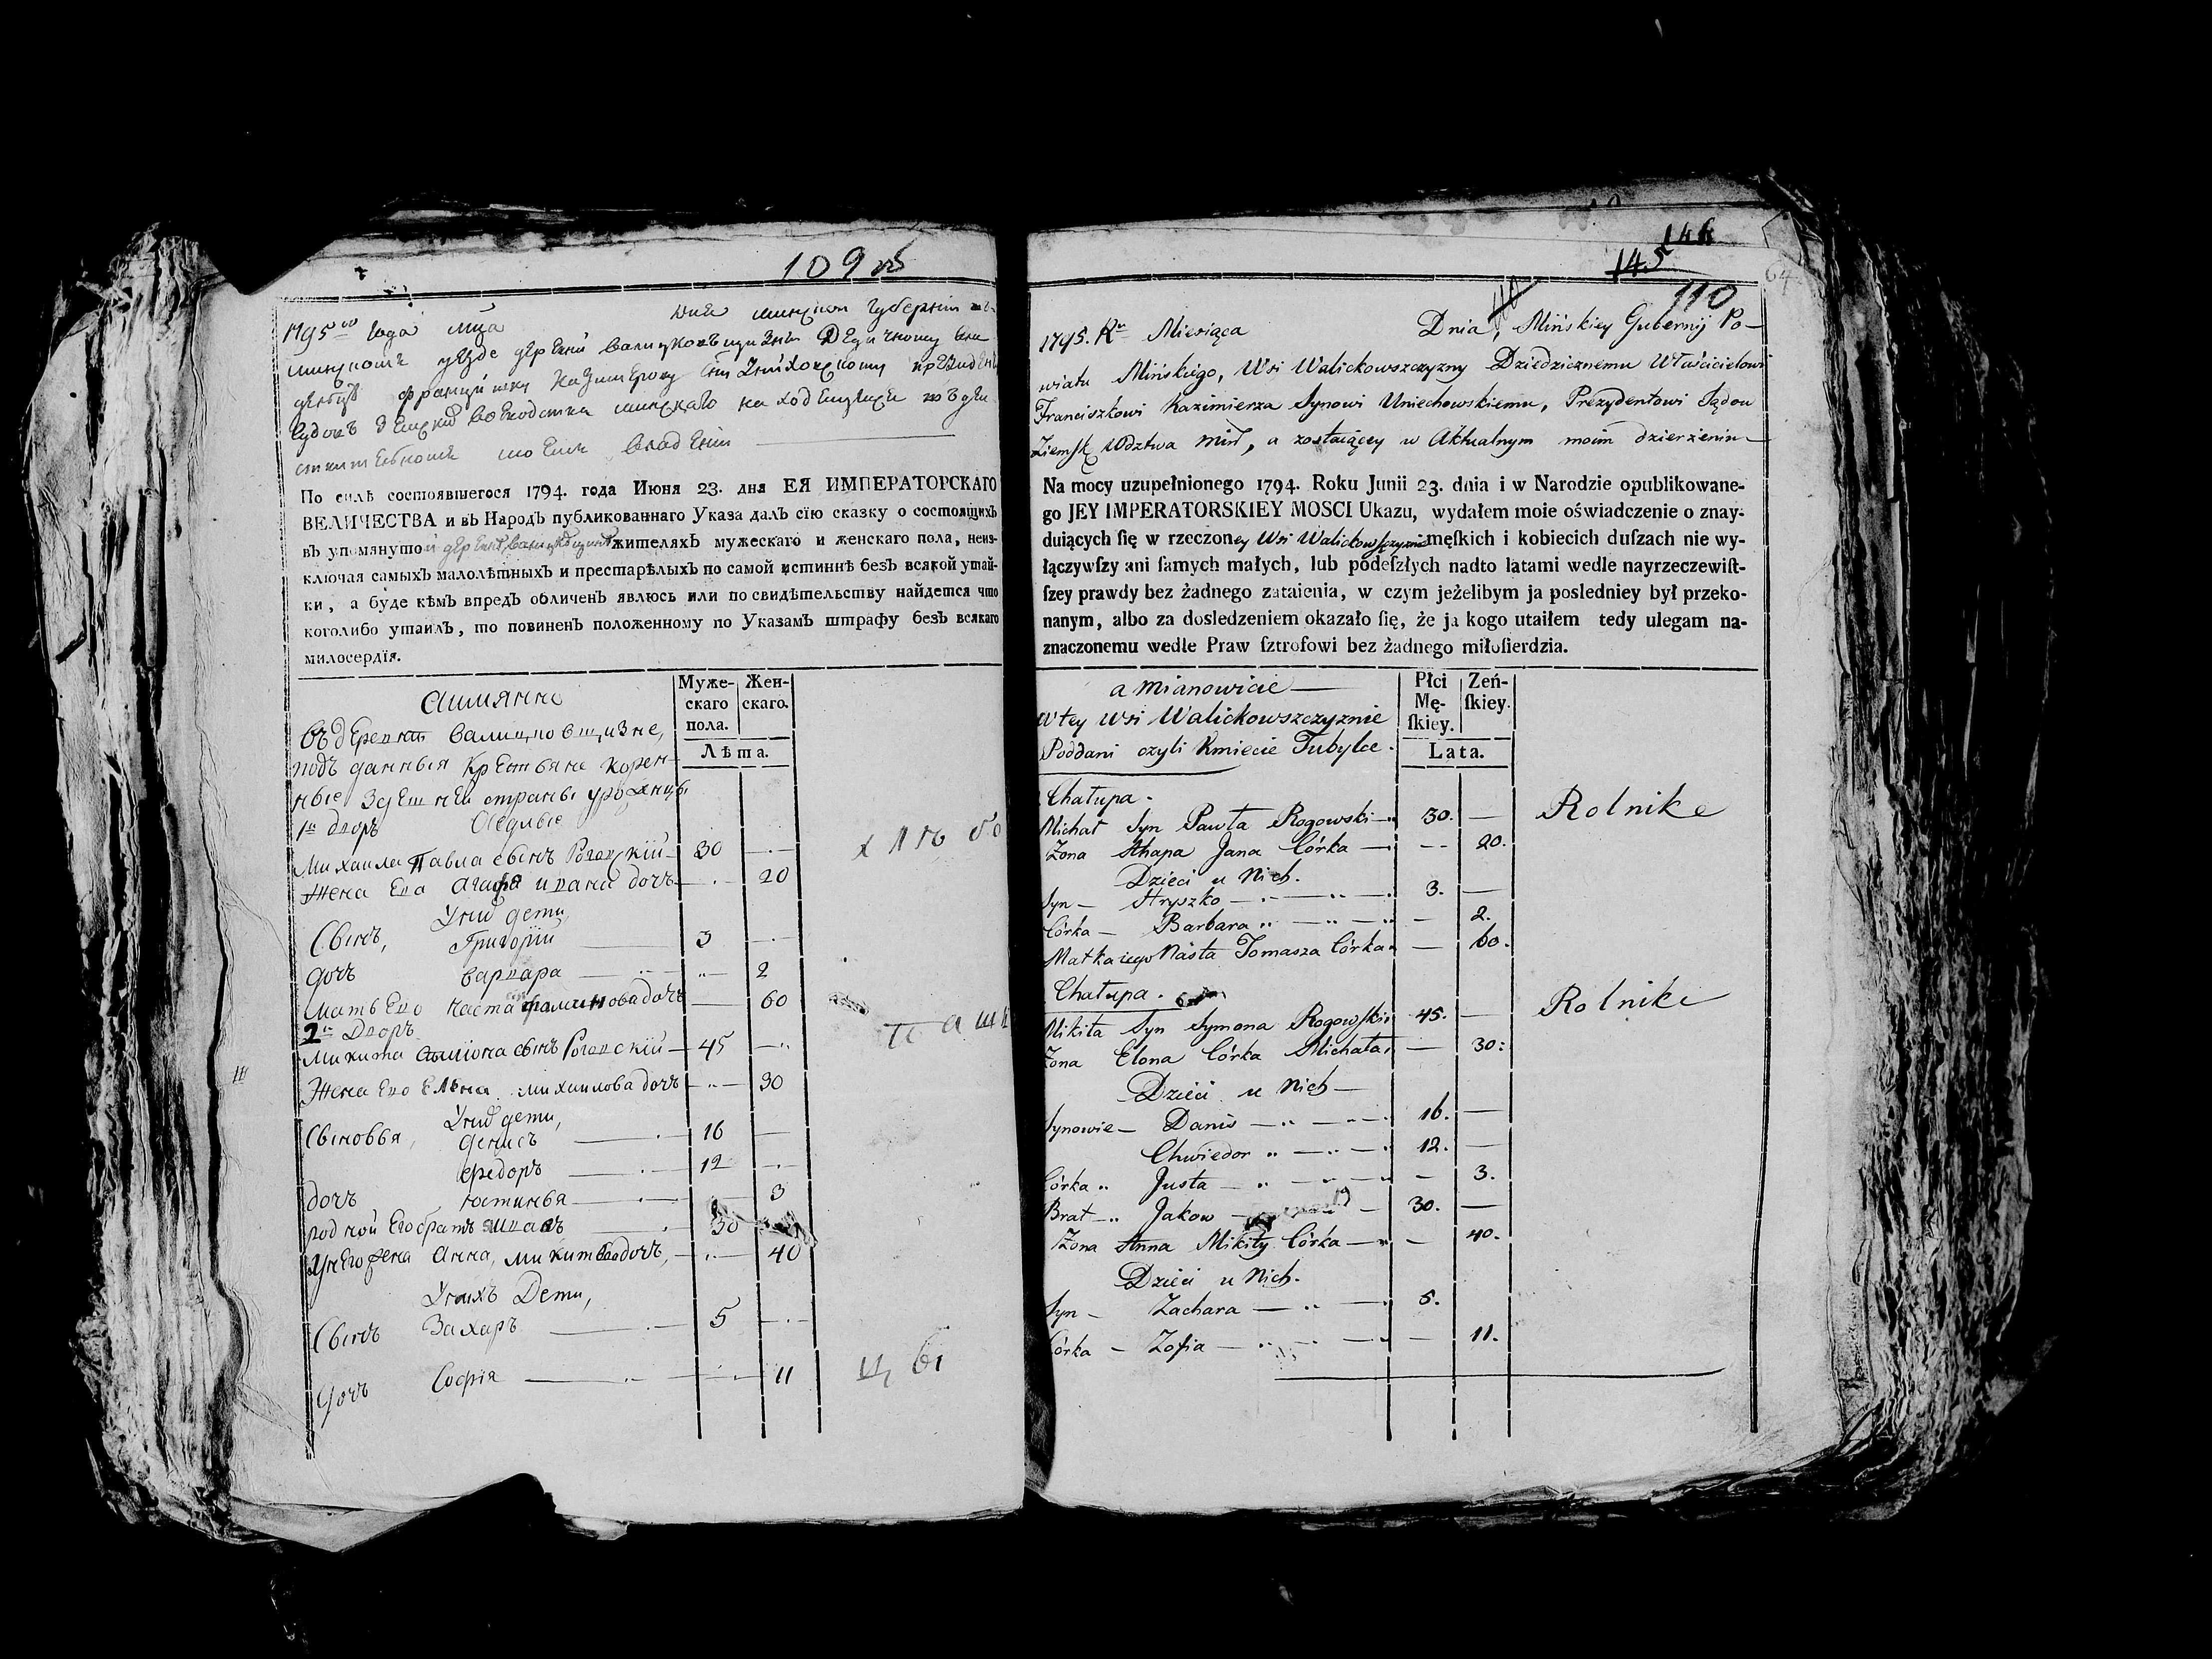 109 об
1795го Года мца дня минской губернии въ
минскомъ уезде деревни валицковъщизни
францишку Казимерову сну
По силѣ состоявшегося 1794. года Июня 23. дня ЕЯ ИМПЕРАТОРСКАГО
ВЕЛИЧЕСТВА и въ Народъ публикованнаго Указа далъ сїю сказку о состоящихъ
въ упомянутой деревне жителяхъ мужескаго и женскаго пола, неиз-
ключая самыхъ малолѣтныхъ и престарѣлыхъ по самой истиннѣ безъ всякой утай-
ки, а буде кѣмъ впредъ обличенъ явлюсь или по свидѣтельству найдется что
коголибо утаилъ, то повиненъ положенному по Указамъ штрафу безъ всякаго
милосердїя.
Аимянно
Муже-скаго пола. Жен-скаго.
Лѣта.
въ деревни валицковщизне,
подъданныя крестьяне корен-
ные здешней страны
1й дворъ
михаила Павла сынъ Роговский 30
жена Ево агафя ивана дочъ 20
У них дети
Сынъ, Григорій 3
дочъ варвара 2
мать Ево наста дочъ 60
2й Дворъ
микита сынъ Роговский 45
Жена Ево Елена михаилова дочъ 30
У них дети,
Сыновья, денисъ 16
федоръ 12
дочъ юстинья 3
родной Его братъ 30
У него жена анна, дочъ, 40
У нихъ Дети,
Сынъ Захаръ 5
дочъ Софія 11
146
145
110
64
1795. Ru Miesiąca Dnia, Mińskiey Gubernij Po-
wiatu Mińskiego, Wsi Walickowszczyzny Dziedzicznemu Właścicielowi
Franciszkowi Kazimierza Synowi Uniechowskiemu, Prezydentowi Sądow
Ziemsk Wdztwa Miń, a zostaiącey w Aktualnym moim dzierżeniu
Na mocy uzupełnionego 1794. Roku Junii 23. dnia i w Narodzie opublikowane-
go JEY IMPERATORSKIEY MOSCI Ukazu, wydałem moie oświadczenie o znay-
duiących ſię w rzeczoney Wsi Walickowszczyznie męſkich i kobiecich duſzach nie wy-
łączywſzy ani ſamych małych, lub podeſzłych nadto latami wedle nayrzeczewiſt-
ſzey prawdy bez żadnego zataienia, w czym jeżelibym ja posledniey był przeko-
nanym, albo za dosledzeniem okazało ſię, że ja kogo utaiłem tedy ulegam na-
znaczonemu wedle Praw ſztrofowi bez żadnego miłoſierdzia.
a Mianowicie
Płci Mę-ſkiey. Zeń-ſkiey.
Lata.
w tey Wsi Walickowszczyznie
Poddani czyli Kmiecie Tubylce.
Chałupa.
Michał Syn Pawła Rogowski 30. Rolnike
Zona Ahapa Jana Córka 20.
Dzieci u Nich.
Syn Hryszko 3.
Córka Barbara 2.
Matka iego Nasta Tomasza Córka 60.
Chałupa.
Mikita Syn Symona Rogowſki 45. Rolnike
Zona Elona Córka Michała 30:
Dzieci u Nich
Synowie Danis 16.
Chwiedor 12.
Córka Justa 3.
Brat Jakow 30.
Zona Anna Mikity Córka 40.
Dzieci u Nich.
Syn Zachara 5.
Córka Zofia 11.